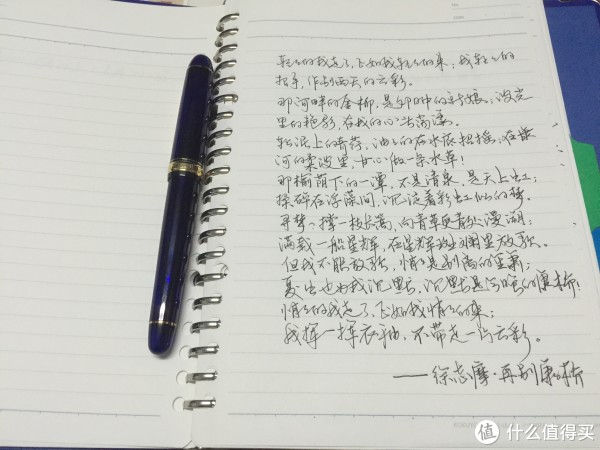 轻轻的我走了,正如我轻轻的来;我轻轻的
招手,作别西天的云彩。
那河畔的金柳,是夕阳中的新娘;波光
里的艳影,在我的心头荡漾。
软泥上的青荇,油油的在水底招摇;在康
河的柔波里,甘心做一条水草!
那榆荫下的一潭,不是清泉,是天上虹;
揉碎在浮藻间,沉淀着彩虹似的梦。
寻梦?撑一枝长篙,向青草更青处漫溯;
满载一船星辉,在星辉斑斓里放歌。
但我不能放歌,悄悄是别离的笙箫;
夏虫也为我沉默,沉默是今晚的康桥!
悄悄的我走了,正如我悄悄的来;
我挥一挥衣袖,不带走一片云彩。
——徐志摩·再别康桥
值 什么值得买